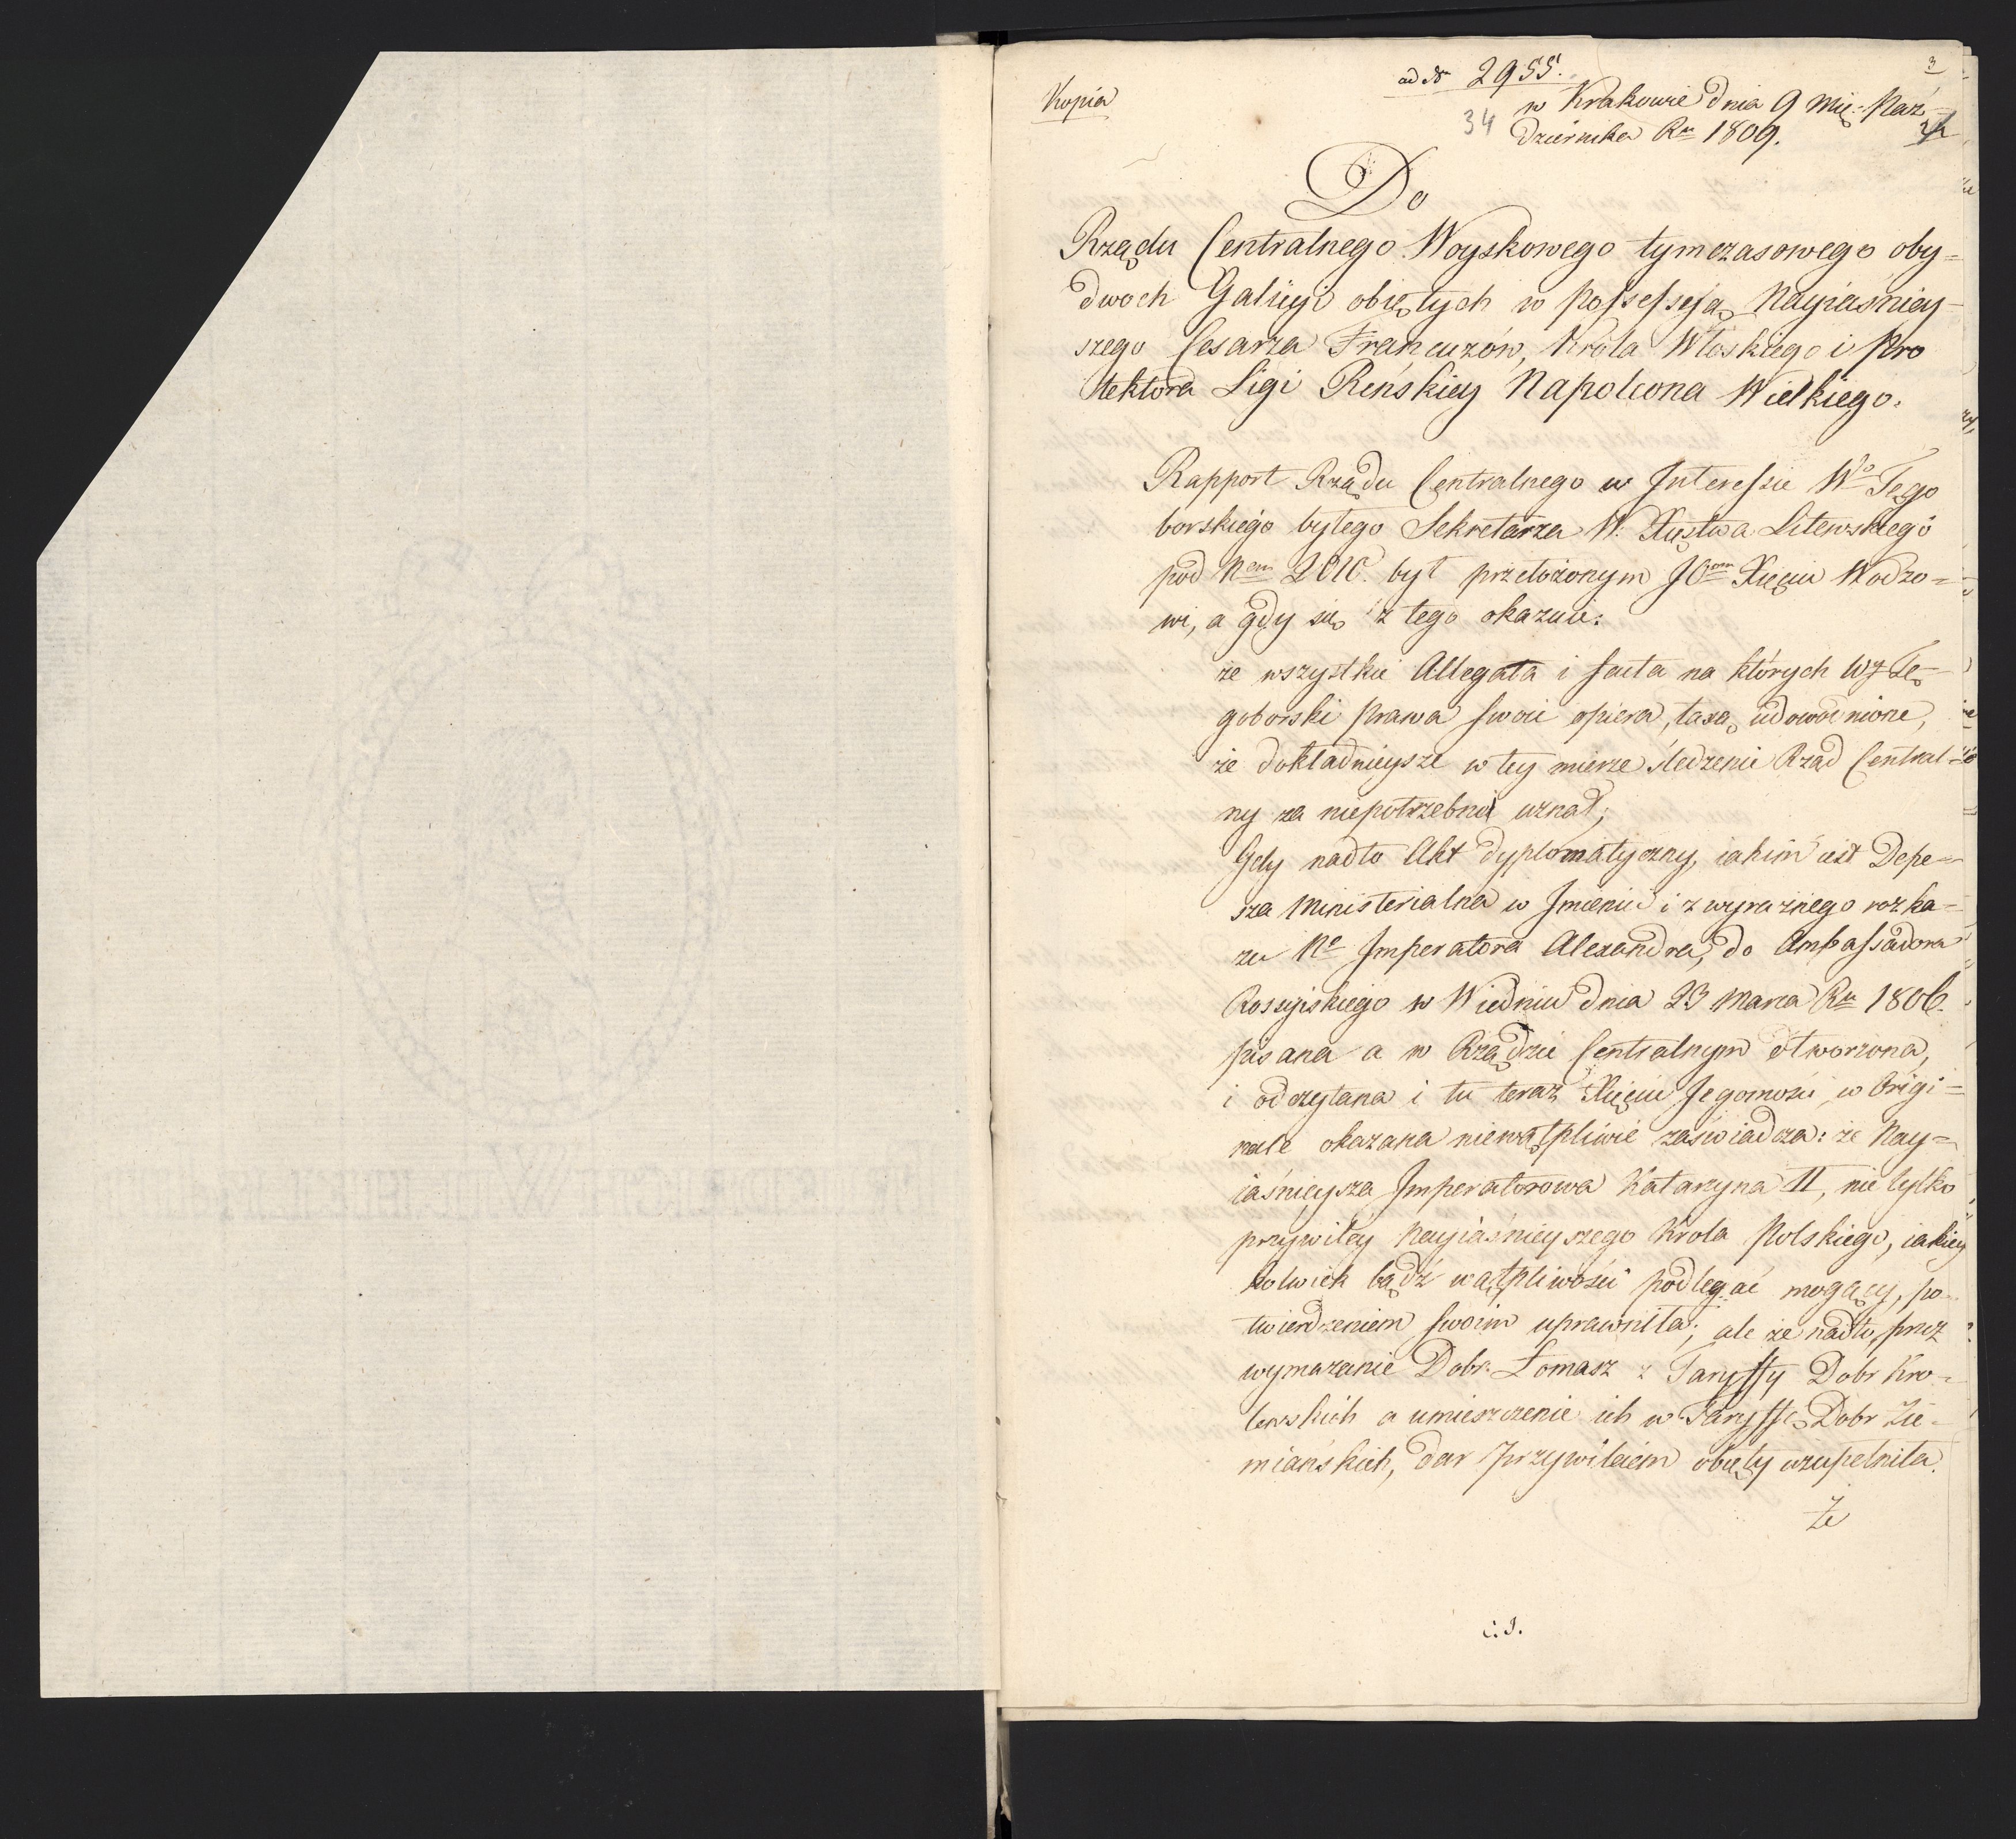 3
ad N 2955.
Kopia
w Krakowie dnia 9 Mię: Paź-
34
dziernika Ru 1809.
Do
Rządu Centralnego Woyskowego tymczasowego oby=
dwoch Galicyi obiętych w possessyą Nayiaśniey-
szego Cesarza Francuzów, Króla Włoskiego i Pro
tektora Ligi Reńskiey Napoleona Wielkiego.
Rapport Rządu Centralnego w Interessie Wo Tęgo
borskiego byłego Sekretarza W. Xięstwa Litewskiego
pod Nem 2010. był przełożonym JOmu Xięciu Wodzo=
wi, a gdy się z tego okazuie:
że wszystkie Allegata i facta na których Tę-
goborski prawa swoie opiera, są udowodnione,
że dokładnieysze w tey mierze śledzenie Rząd Central=
ny za niepotrzebne uznał;
Gdy nadto Akt dyplomatyczny, iakim iest Depe-
sza Ministerialna w Imieniu i z wyraźnego rozka-
zu No Imperatora Alexandra, do Ambassadora
Rossyiskiego w Wiedniu dnia 23 Marca Ru 1806.
pisana a w Rządzie Centralnym otworzona,
i odczytana i tu teraz Xięciu Jegomości w Origi=
nale okazana niewątpliwie zaświadcza: że Nay=
iaśnieysza Imperatorowa Katarzyna II, nie tylko
przywiley Nayiaśnieyszego Króla Polskiego, iakiey
kolwiek bądź wątpliwości podlegać mogący, po-
twierdzeniem swoim uprawniła; ale że nadto, przez
wymazanie Dobr Łomasz z Taryffy Dobr Kro-
lewskich a umieszczenie ich w Taryffę Dobr Zie-
miańskich, dar Przywileiem obięty uzupełniła.
Że